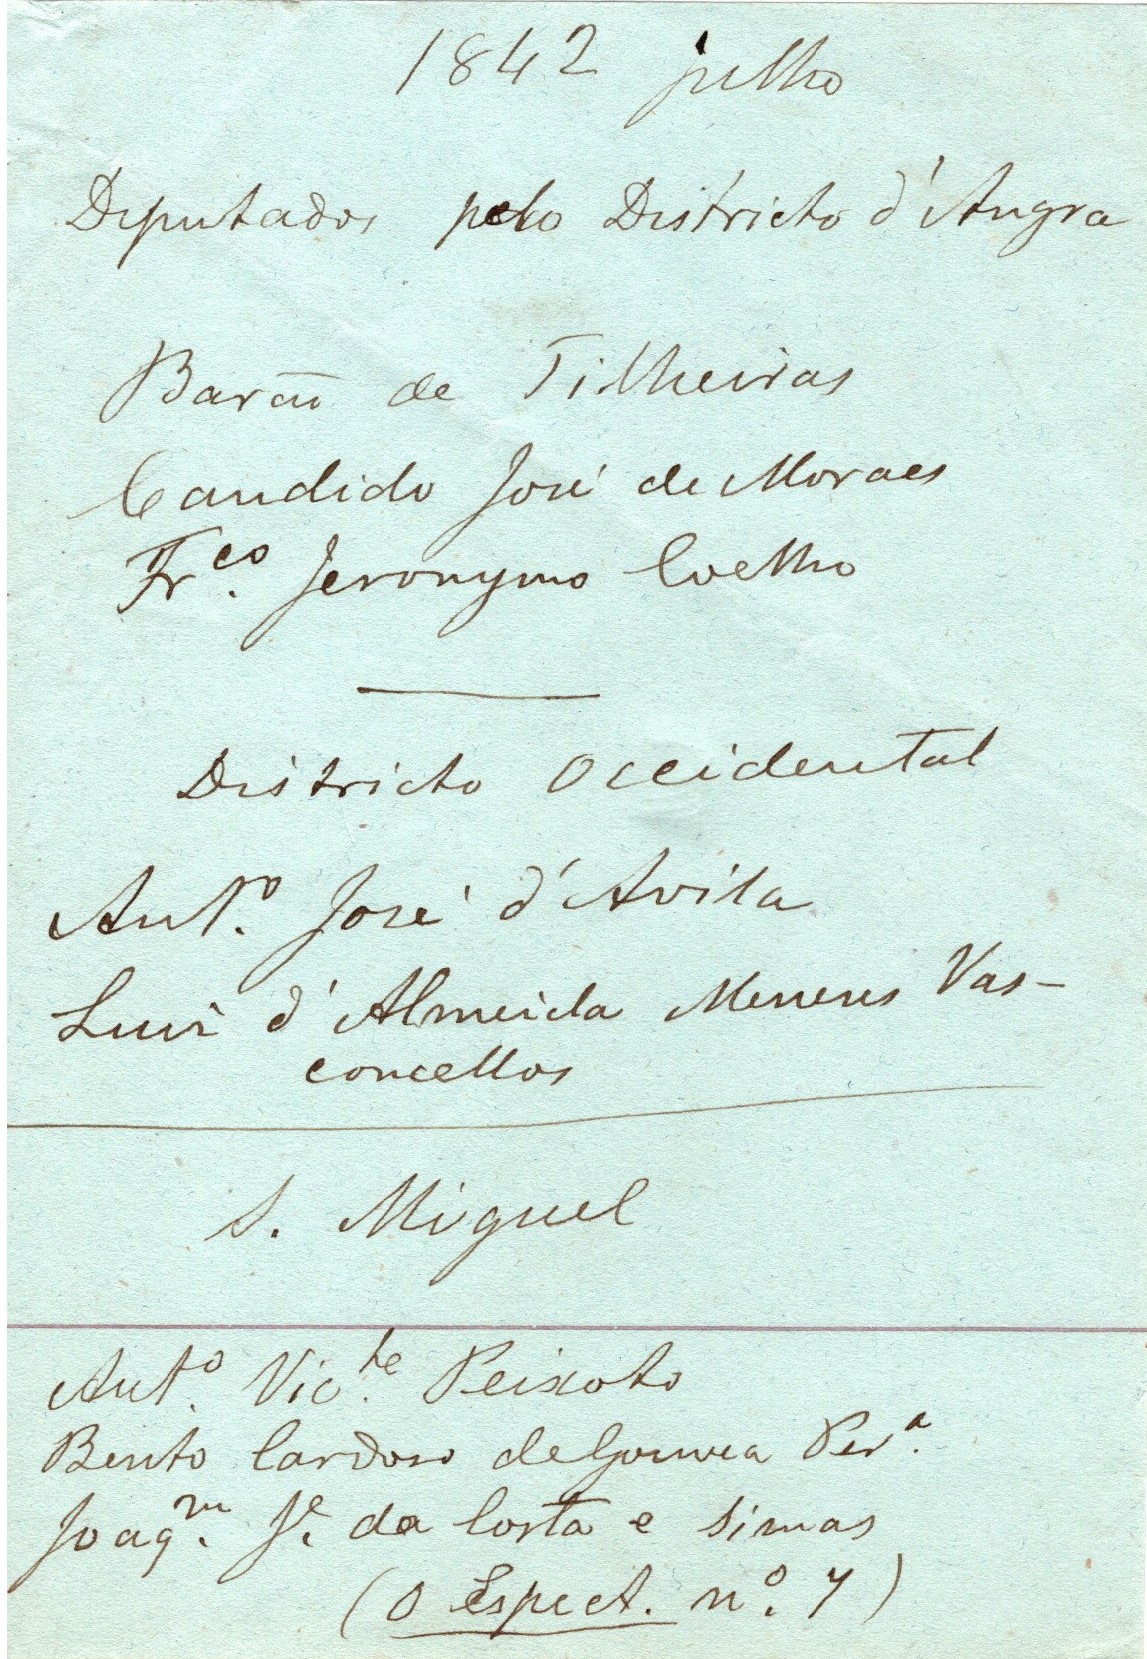 1842 julho
Deputados pelo Districto d'Angra
Barão de Tilheiras
Candido José de Moraes
Fr.co Jeronymo Coelho
Districto Occidental
Ant.o José d'Avila
Luis d'Almeida Menezes Vas-
concellos
S. Miguel
Ant.o Vic.te Peixoto
Bento Cardoso de Gouvea Per.a
Joaq.m J.e da Costa e Simas
(O Espect. n.o 7)